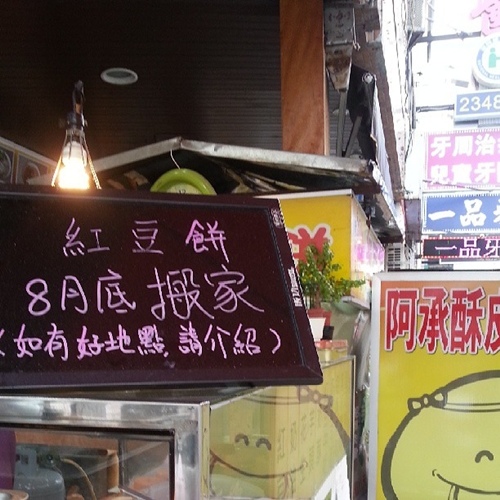 紅豆餅
8月底搬家
(如有好地點,請介紹)
阿承酥皮
2348
牙周治
兒童牙
一品
一品牙